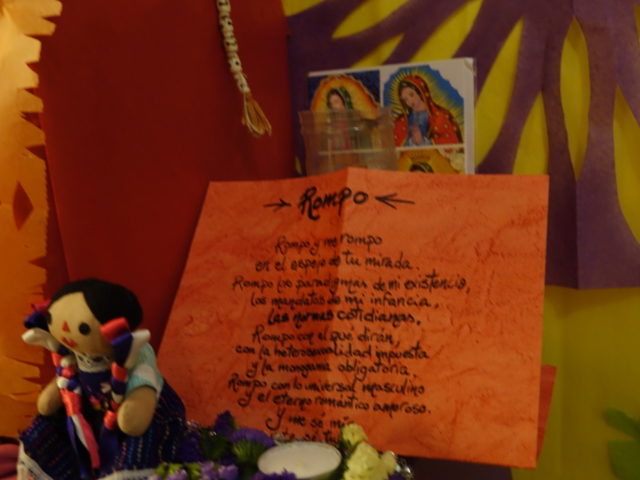 → Rompo ←
Rompo y me rompo
en el espejo de tu mirada.
Rompo los paradigmas de mi existencia,
los mandatos de mi infancia,
las normas cotidianas.
Rompo con el qué dirán,
con la heterosexualidad impuesta
y la monogamia obligatoria.
Rompo con lo universal masculino
y el eterno romántico amoroso.
Y me sé